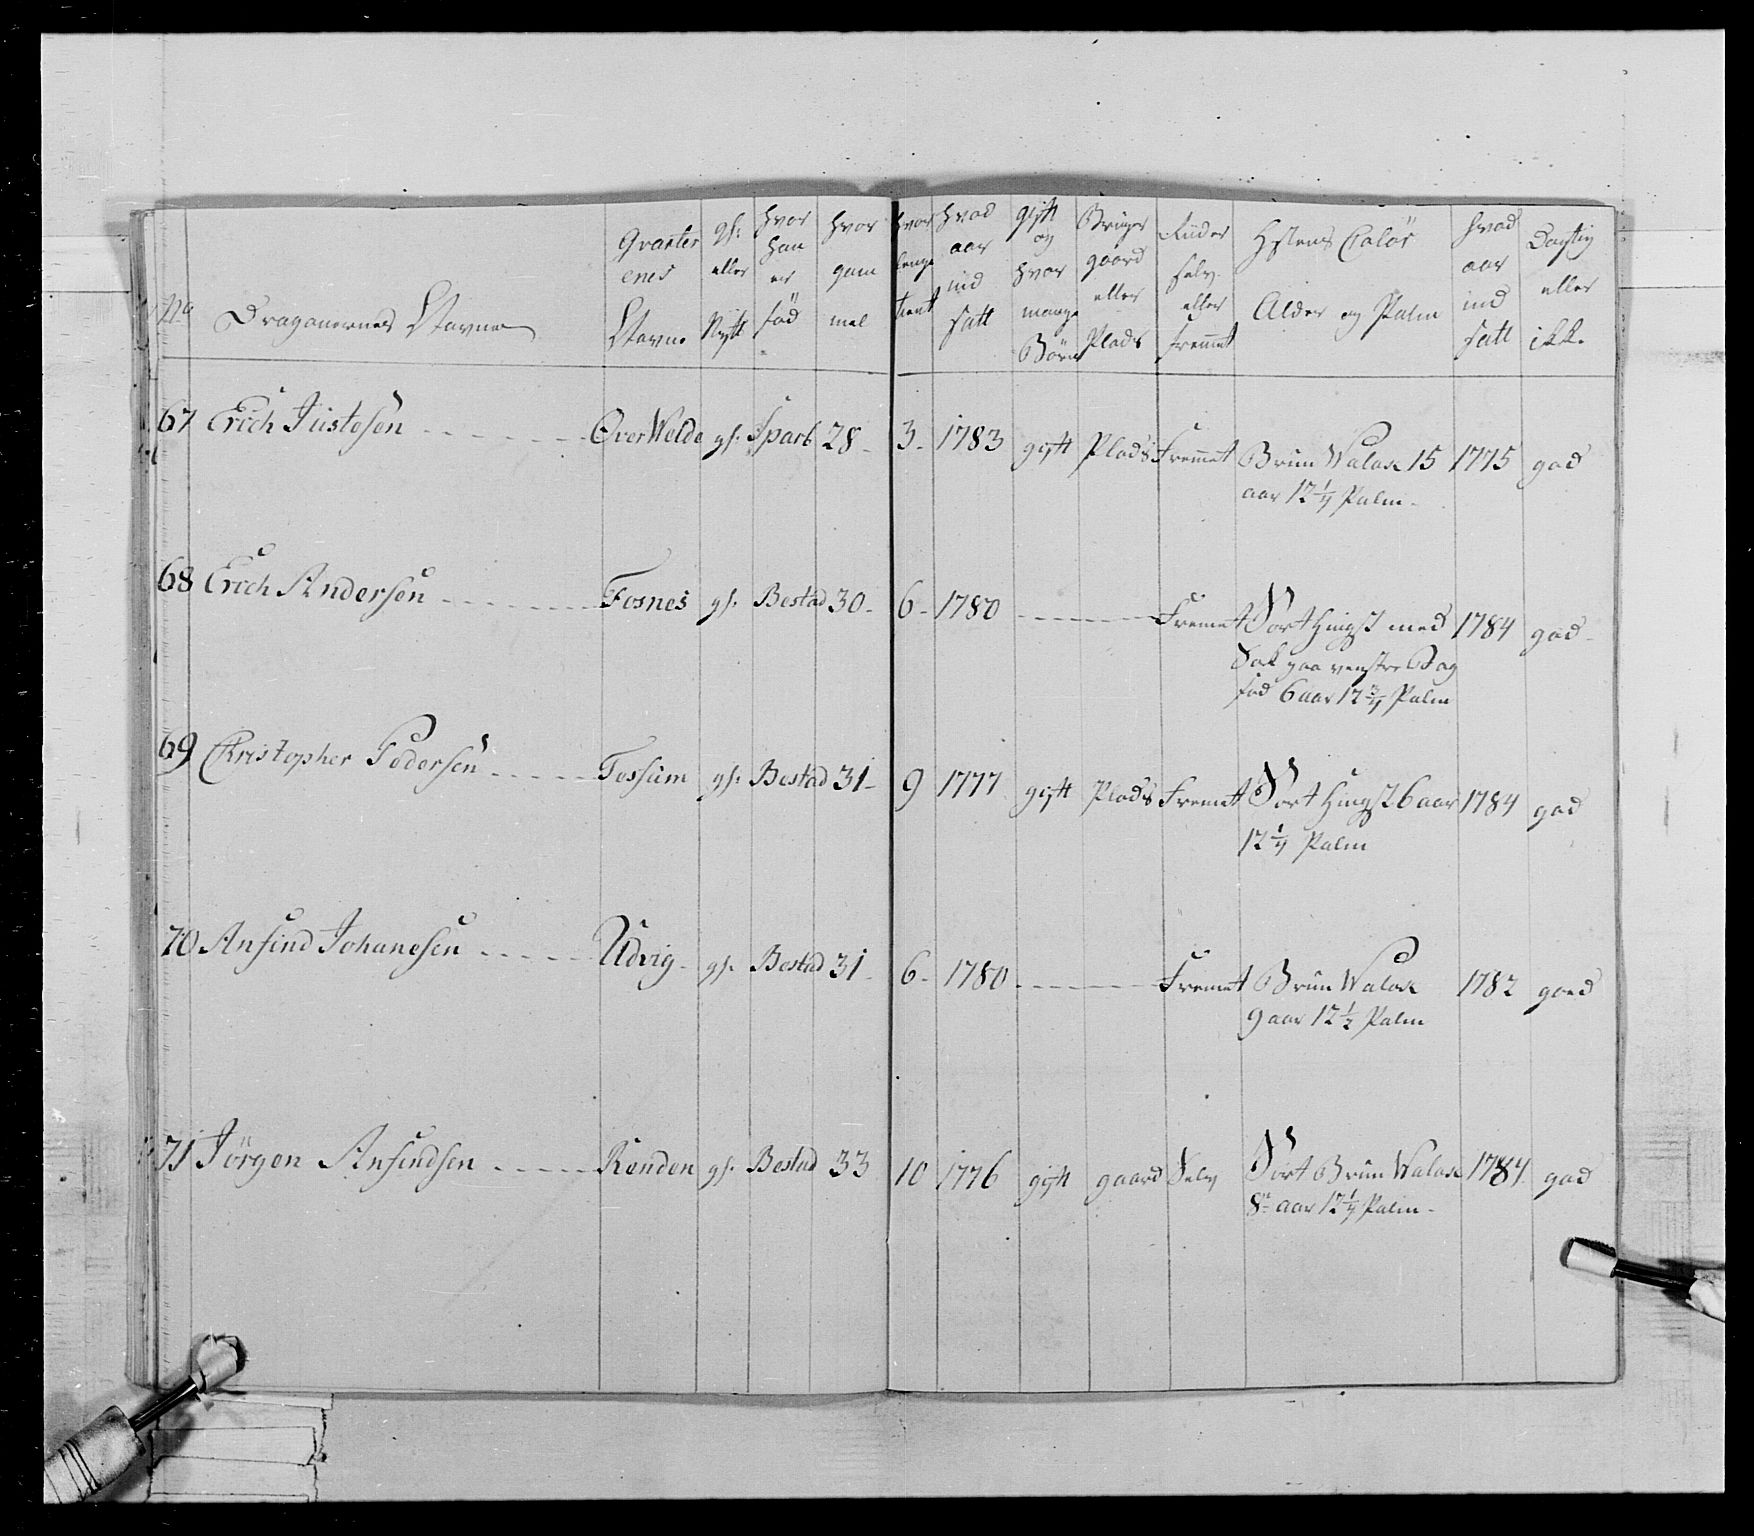 No Dragonernes Navne | Qvarterenes Navn | gl: eller Nytt | hvor han er föd | hvor gammel | hvor lenge tient | hvad aar ind satt | gift og hvor mange Börn | Bruger gaard eller Plads | Riider selv eller fremmet | Hestens Calör Alder og Palm | hvad aar ind satt | Dygtig eller ikk.
67 Erich Justesen | Over Welde | gl. | Sparb | 28 | 3 | 1783 | gift | Plads | Fremmet | Brun Walak 15 | 1775 | god
aar 12 1/4 Palm
68 Erich Andersen | Fosnes | gl. | Bestad | 30 | 6 | 1780 | Fremet | Sort Hingst med | 1784 | god
Sok paa venstre Bag
fod 6 aar 12 3/4 Palm
69 Christopher Pedersen | Fossum | gl. | Bestad | 31 | 9 | 1777 | gift | Plads | Fremet | Sort Hingst 6 aar | 1784 | god
12 1/4 Palm
70 Ansind Johanesen | Udvig | gl. | Bestad | 31 | 6 | 1780 | Fremet | Brun Walak | 1782 | goed
9 aar 12 1/2 Palm
71 Jörgen Ansindsen | Renden | gl. | Bestad | 33 | 10 | 1776 | gift | gaard | Selv | Sort Brun Walak | 1784 | god
8 aar 12 1/4 Palm